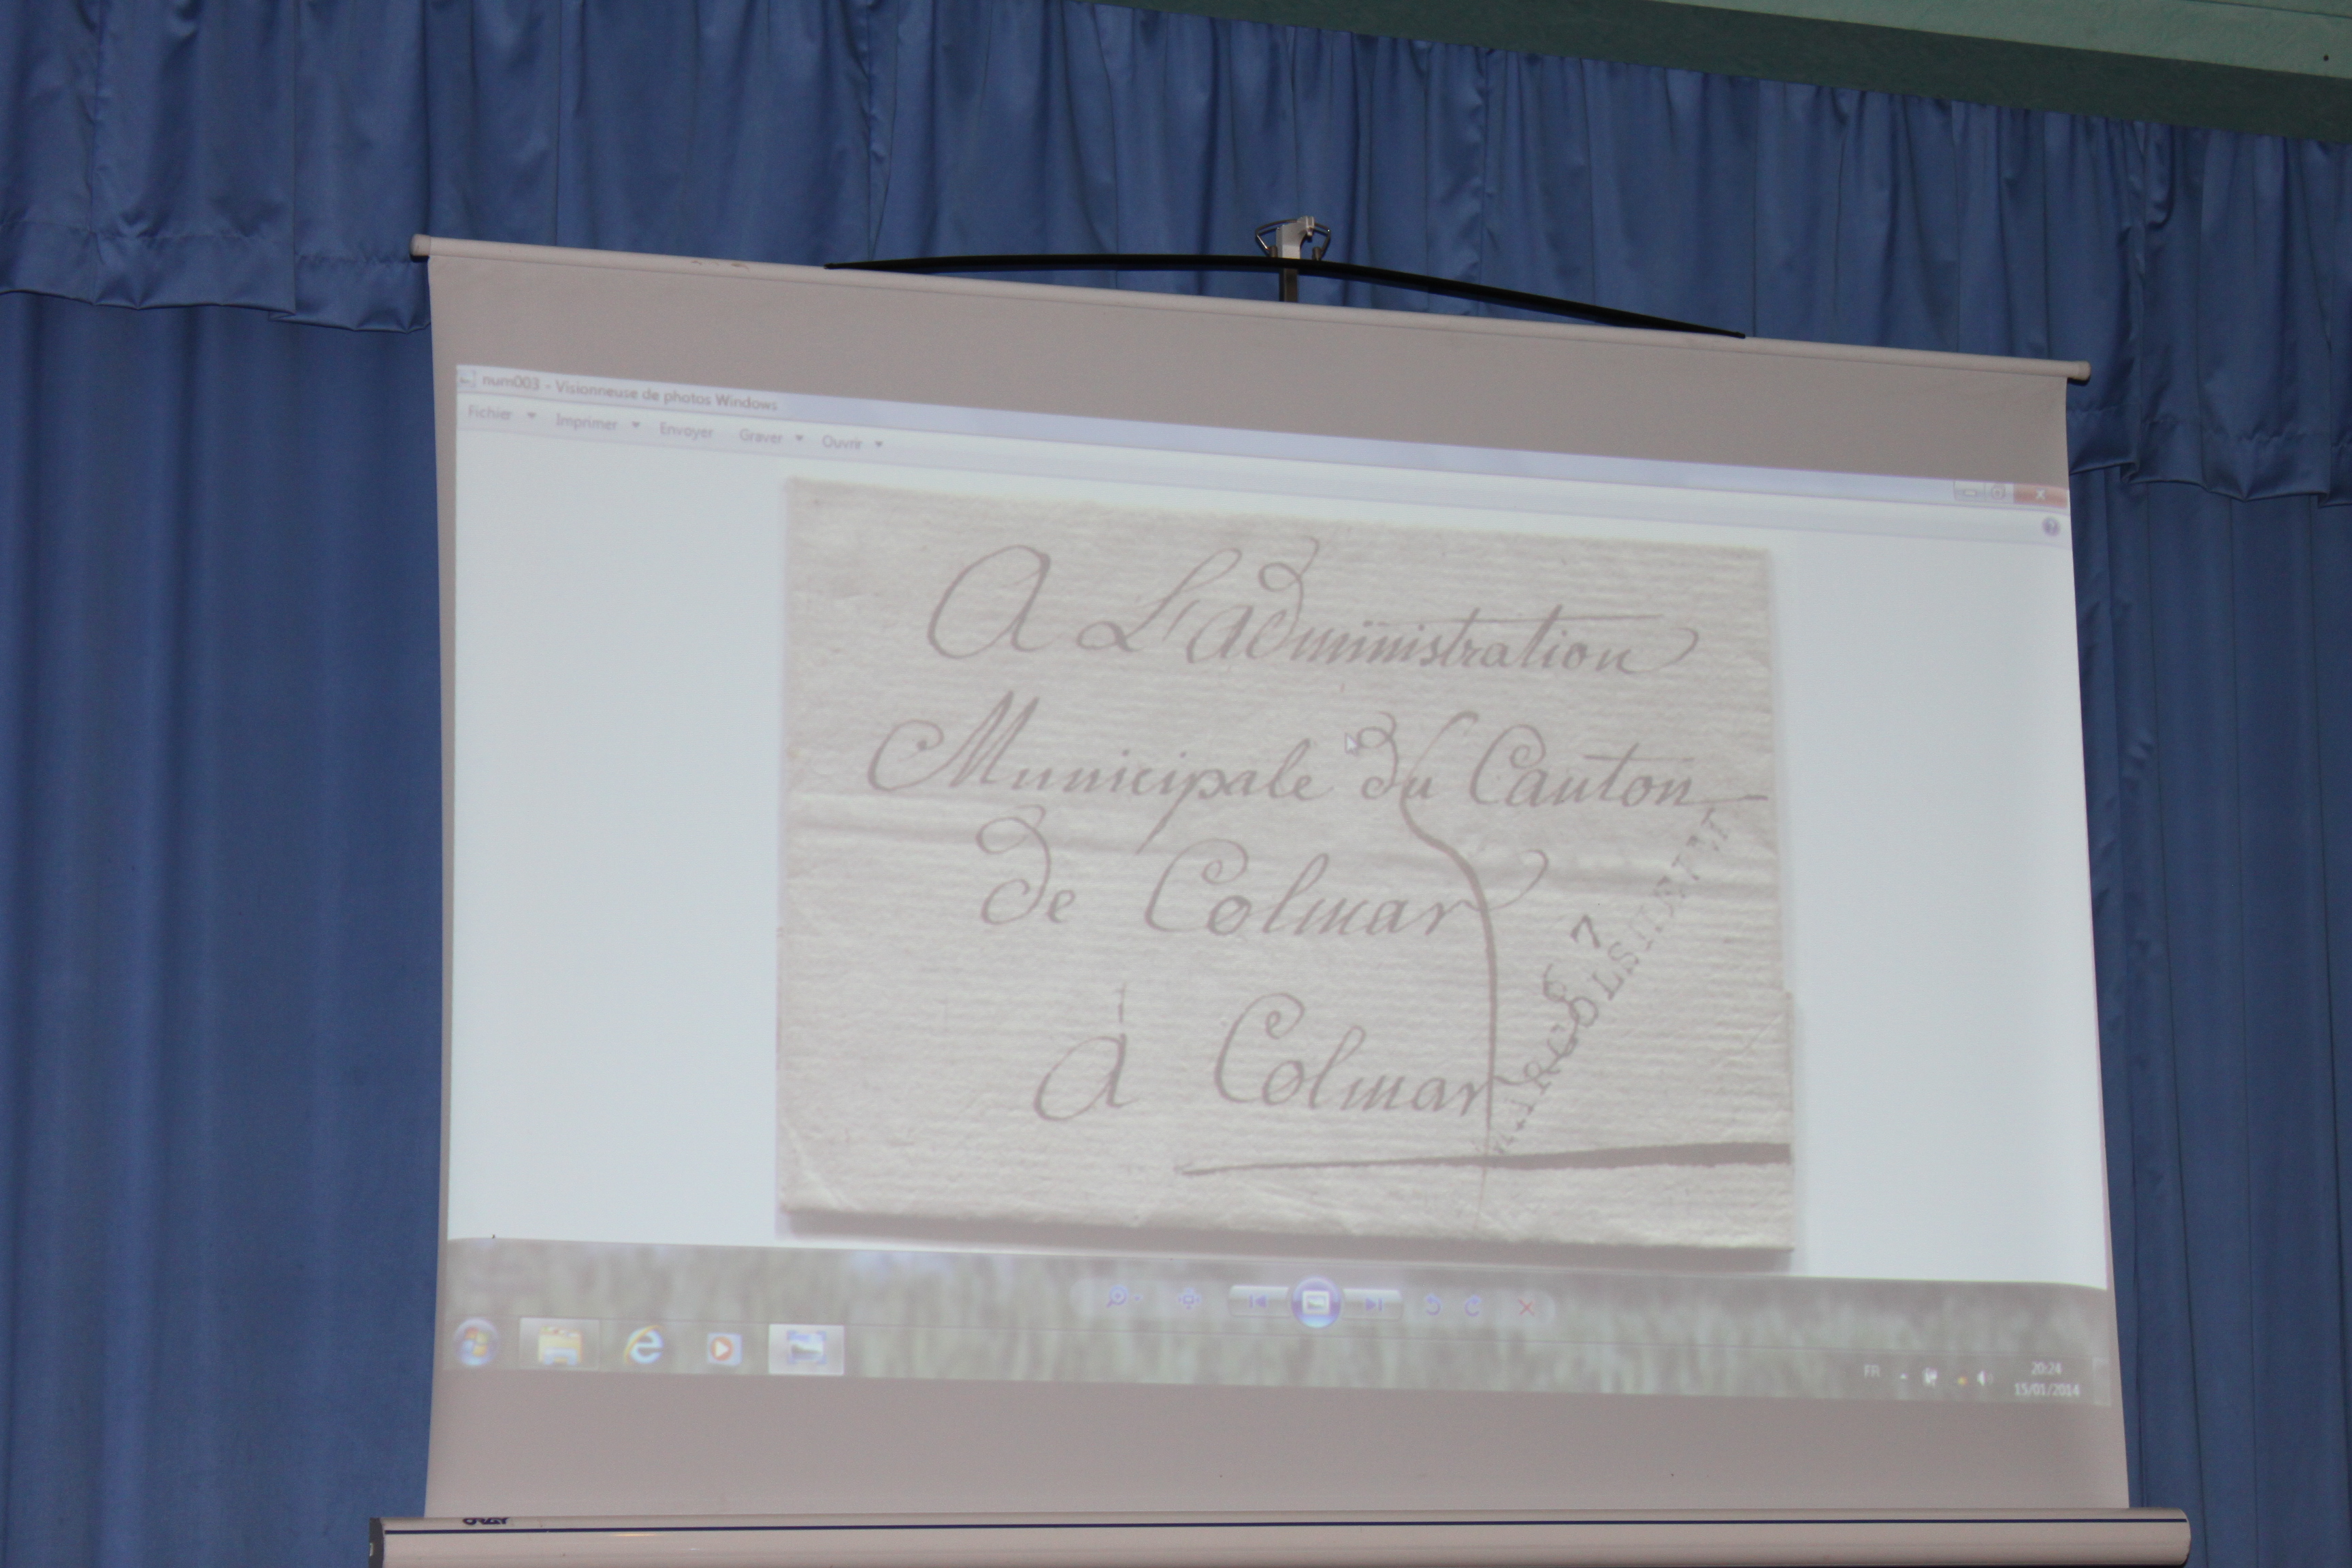 num003 - Visionneuse de photos Windows
Fichier Imprimer Envoyer Graver Ouvrir
A L'administration
Municipale du Canton
de Colmar
à Colmar
67
FR
20:24
15/01/2014